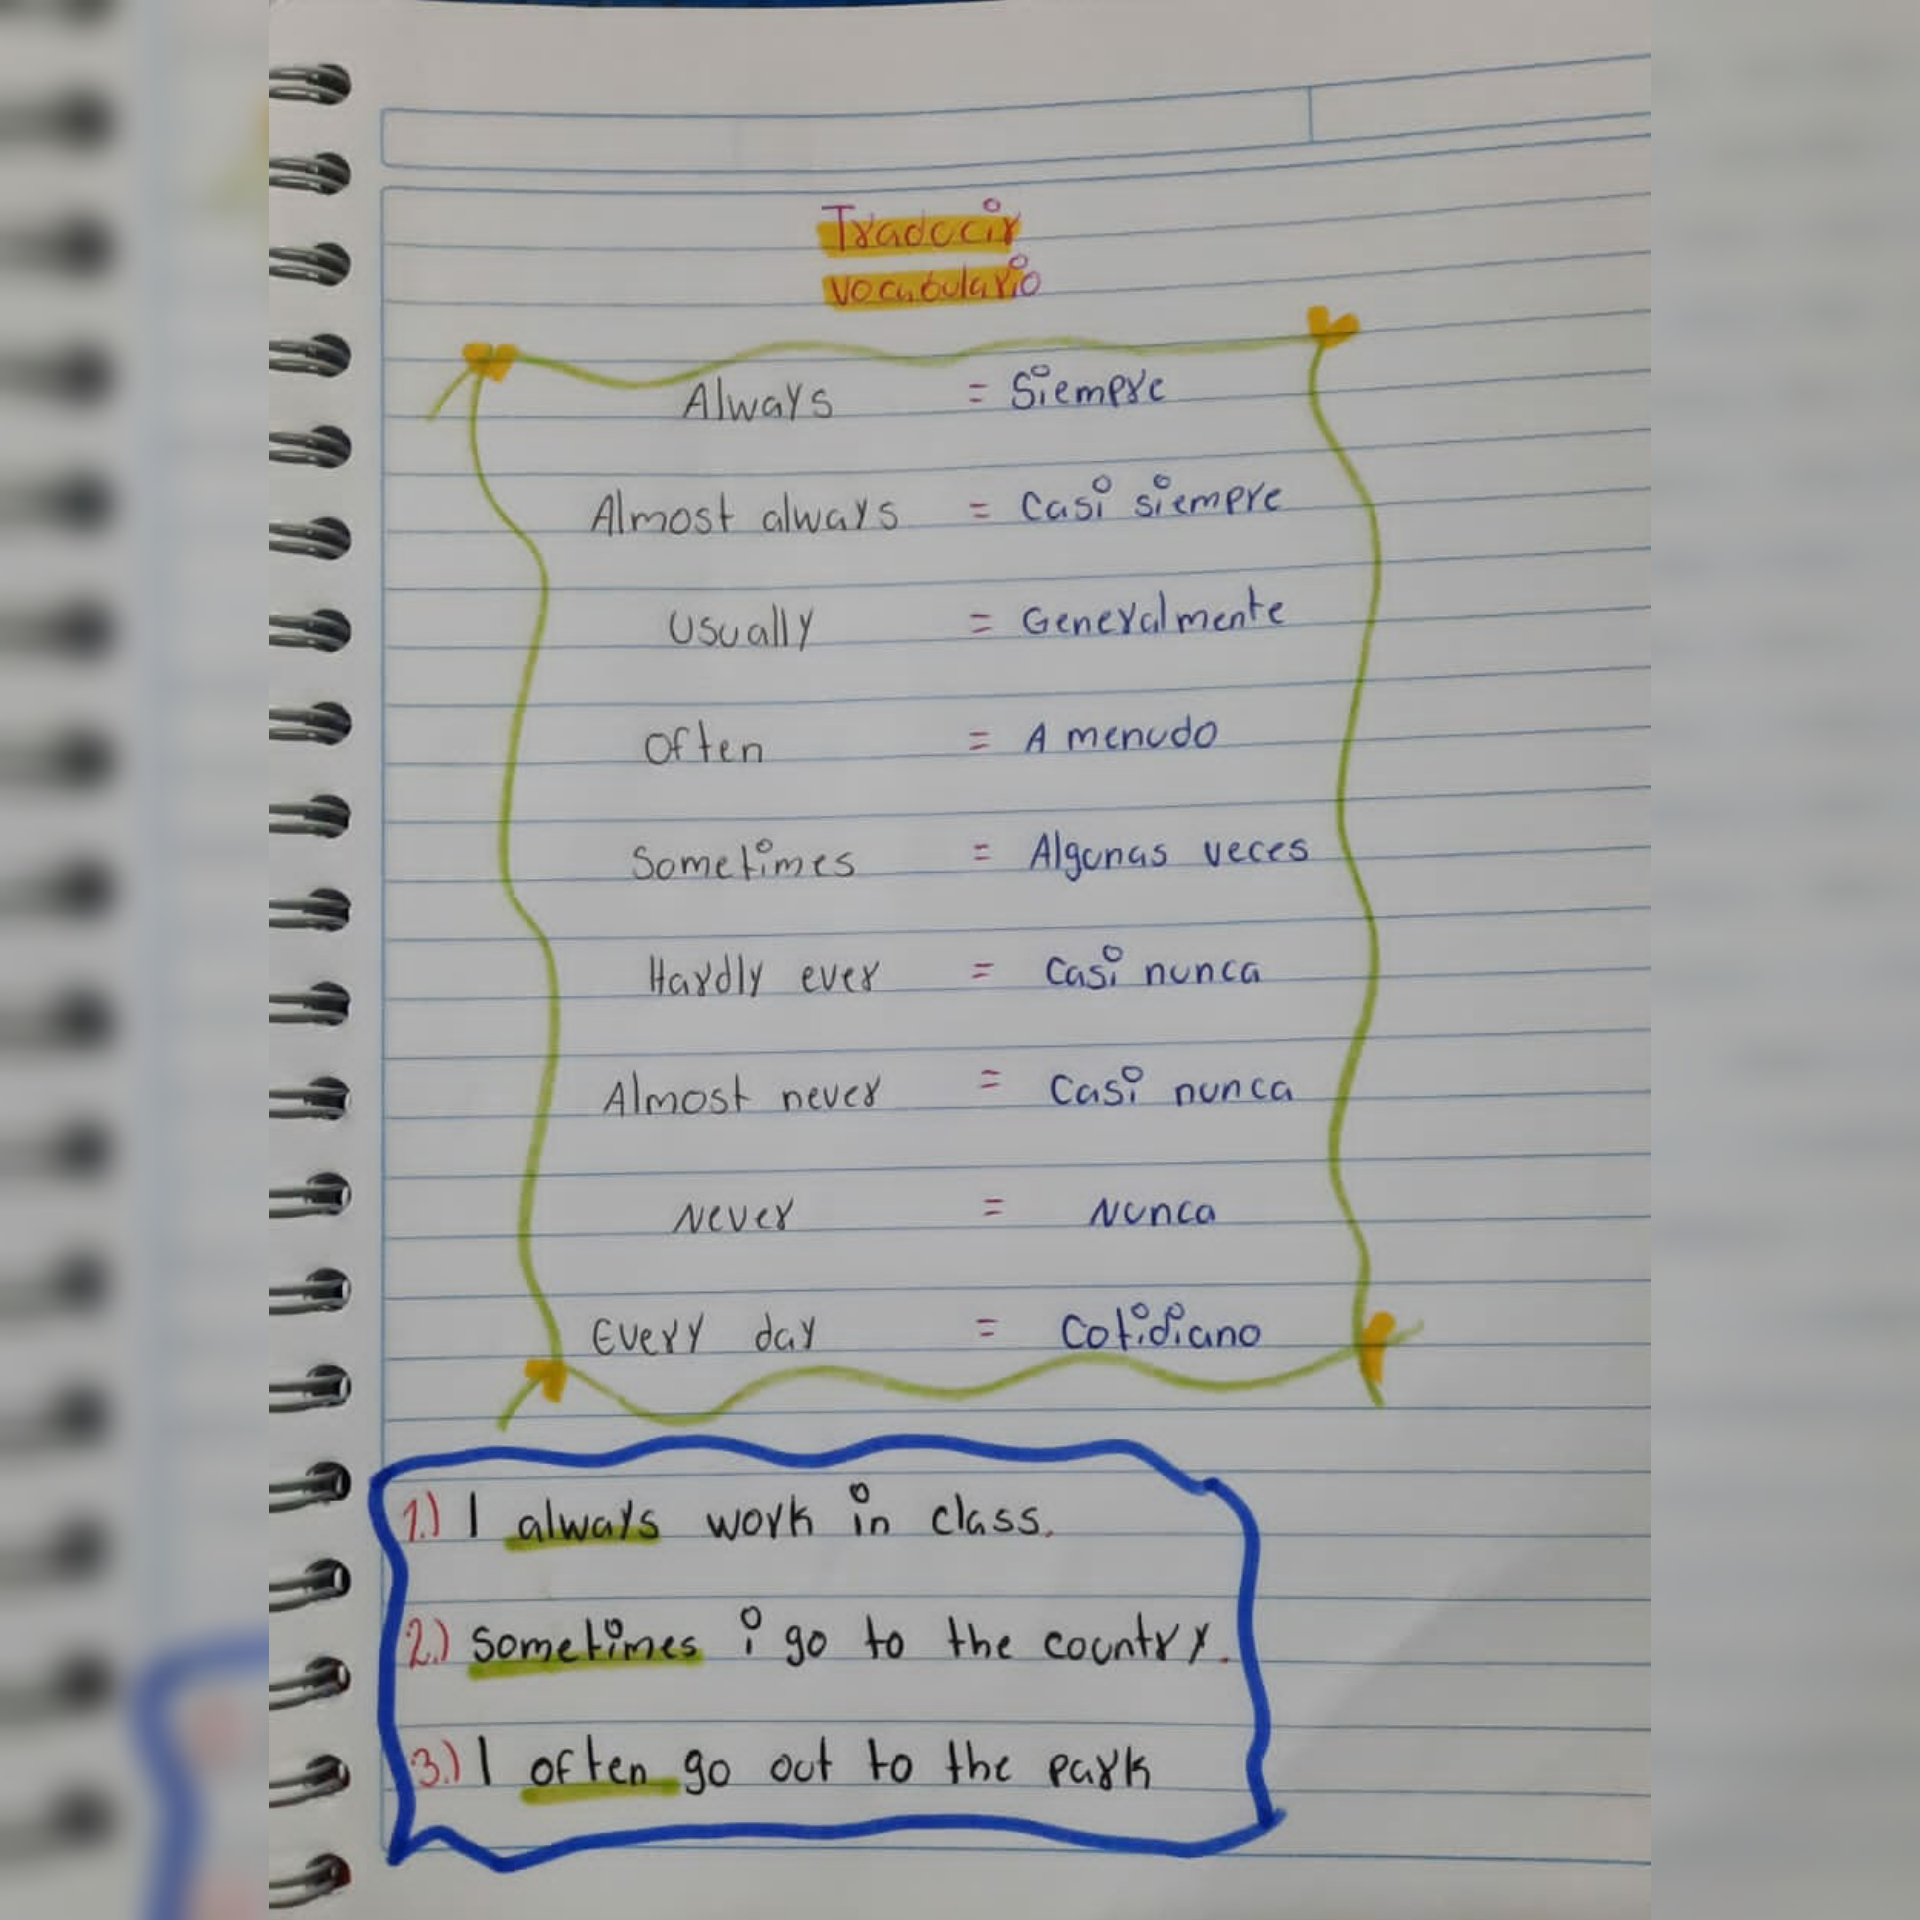 Traducir
vocabulario
Always = Siempre
Almost always = Casi siempre
Usually = Generalmente
Often = A menudo
Sometimes = Algunas veces
Hardly ever = Casi nunca
Almost never = Casi nunca
Never = Nunca
Every day = Cotidiano
1.) I always work in class.
2.) Sometimes i go to the country.
3.) I often go out to the park